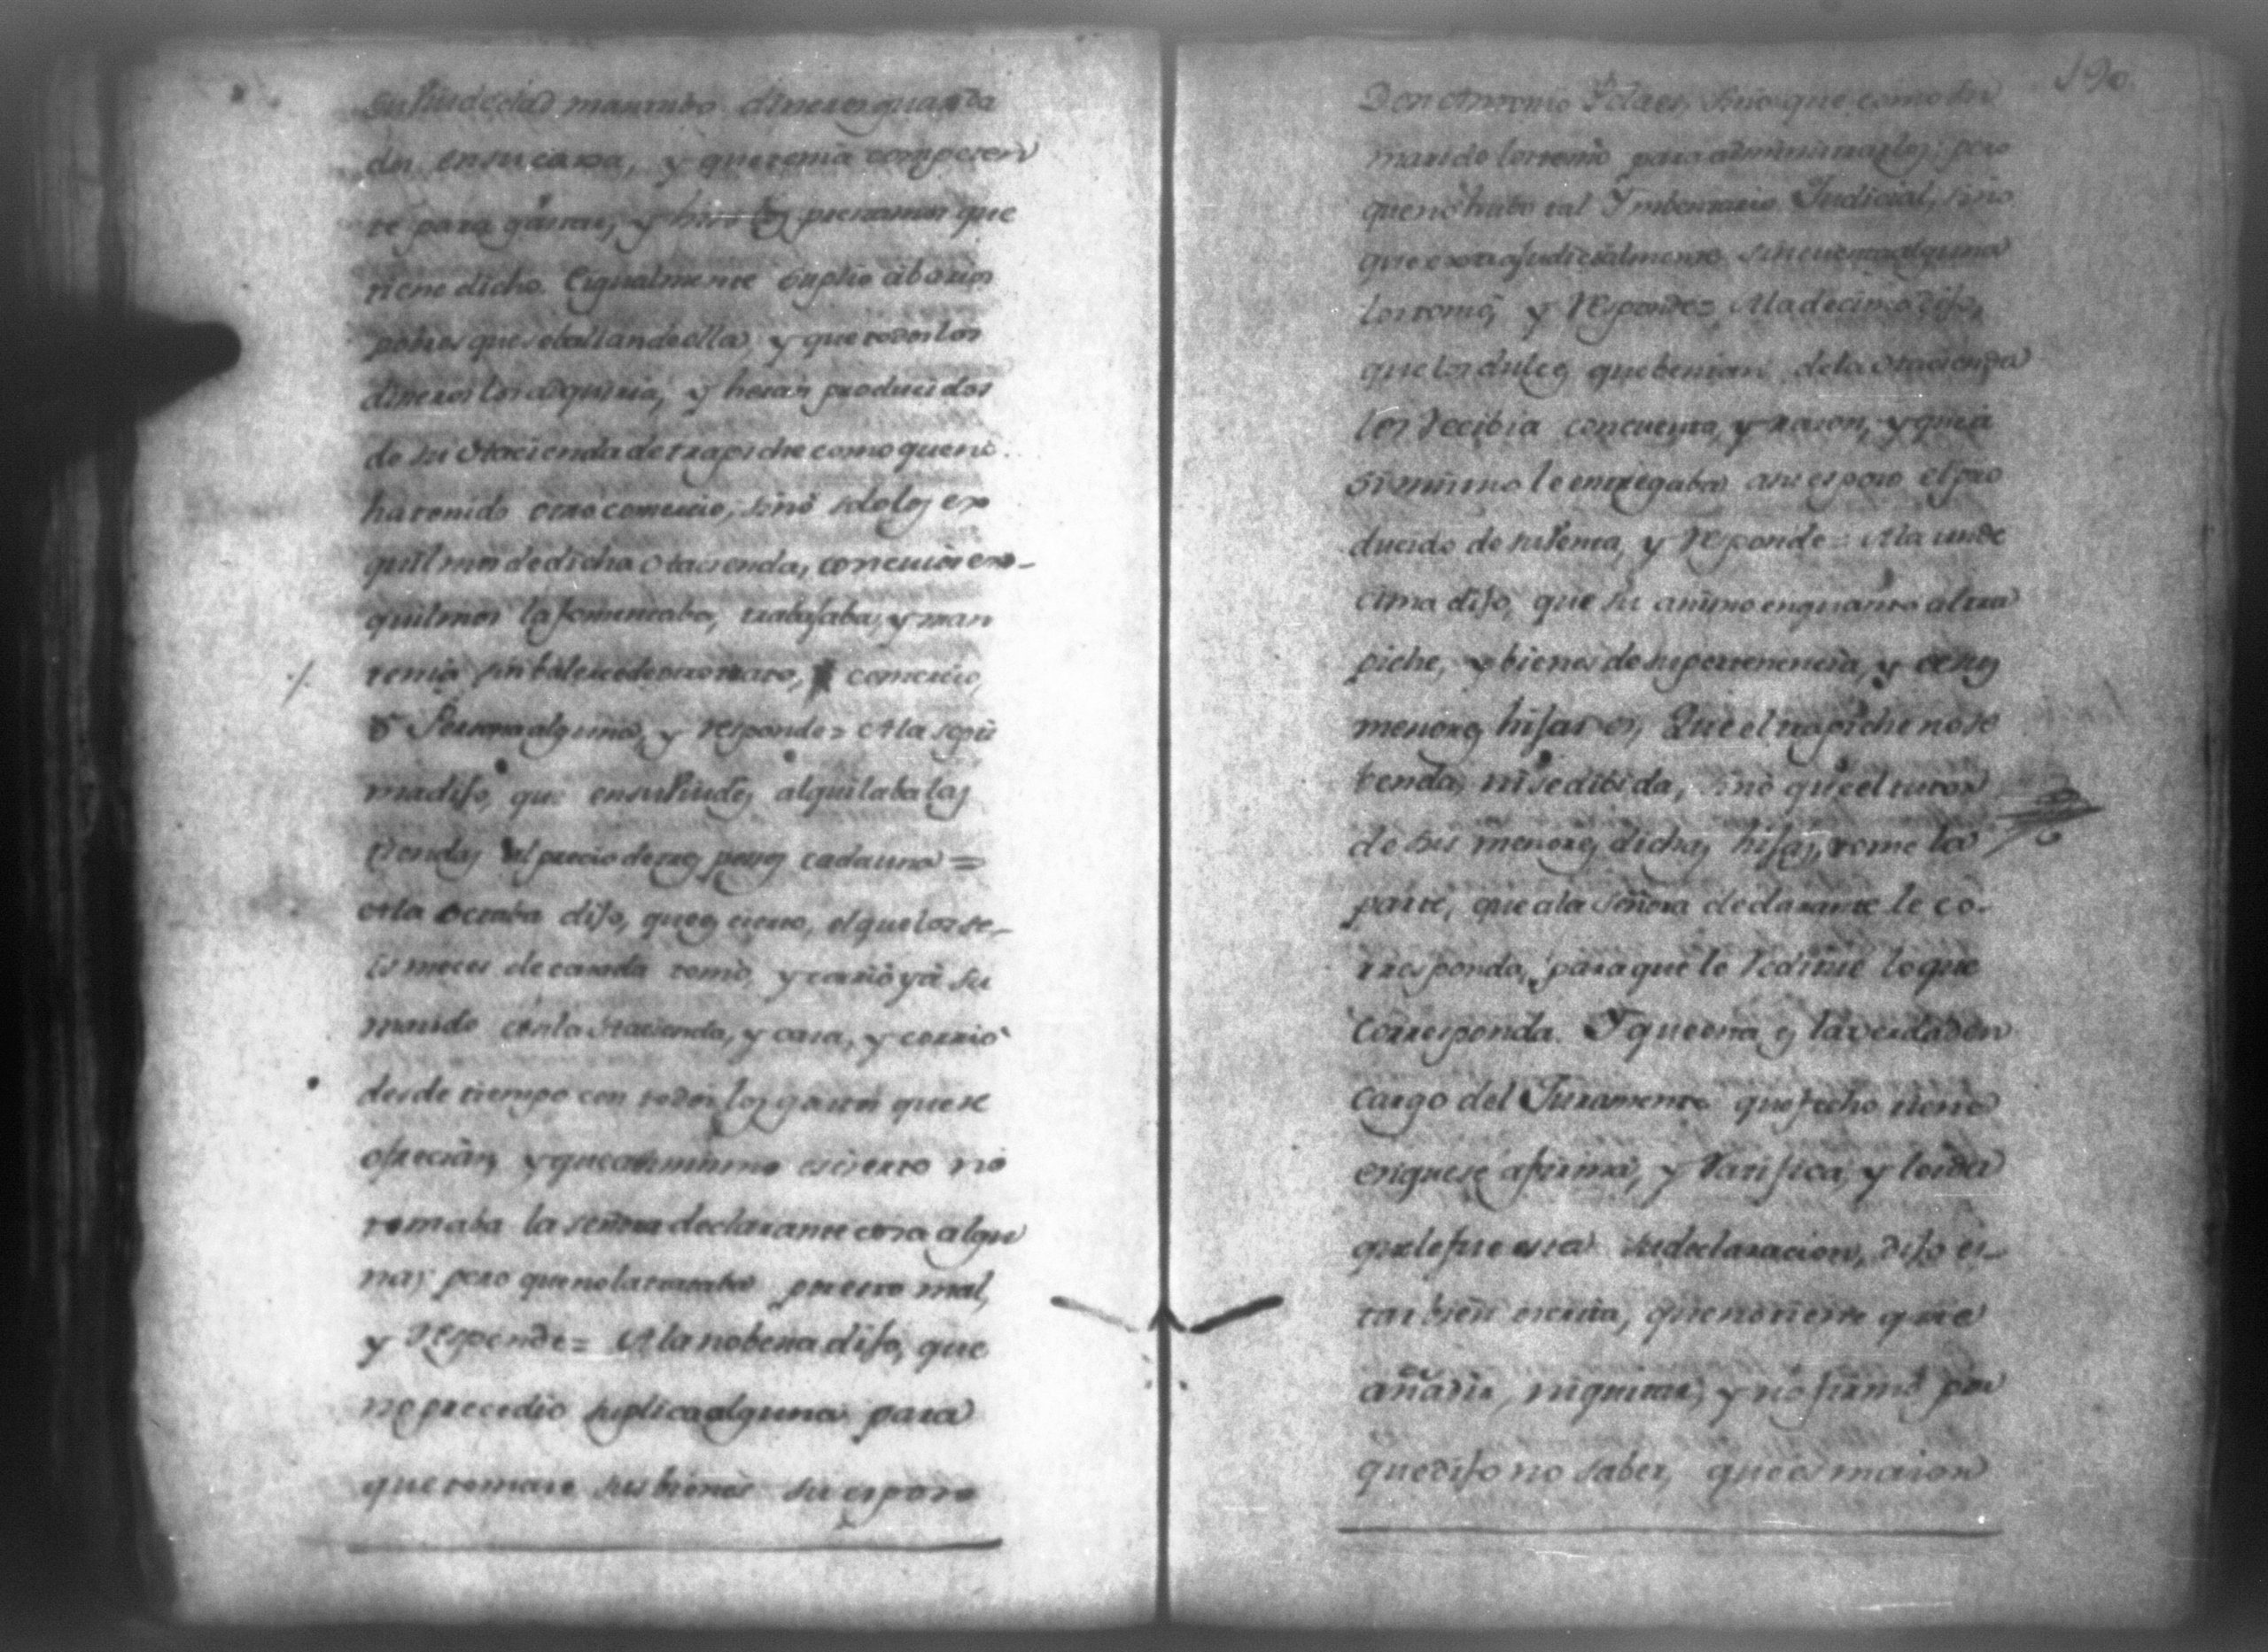 su Viudedad mantubo dineros guarda
dos en su casa, y que tenia competen
te para gastar, y hizo los prestamos que
tiene dicho. E igualmente suplio a barios
pobres que se ballan de ella, y que todos los
dineros los adquiria, y heran producidos
de su Hacienda de trapiche como que no
ha tenido otro comercio, sino solo los ex
quilmos de dicha Hacienda, con cuios ex-
quilmos la fomentaba, trabajaba, y man
tenia sin balerse de otro trato, comercio,
ó Persona alguna, y responde= A la septi
ma dijo, que en su Viudez alquilaba las
tiendas al precio de tres pesos cada una =
A la octaba dijo, que es cierto, el que los se-
is meses de casada tomó, y
marido con la Hacienda, y casa, y corrió
desde tiempo con todos los gastos que se
ofrecian, y que asimismo es cierto no
tomaba la señora declarante cosa algu
na; pero que no la trataba por eso mal,
y Responde= A la nobena dijo, que
no precedio suplica alguna para
que tomase sus bienes su esposo
190.
Don Antonio sino que como su
marido los tomó para administrarlos: pero
que no hubo tal Ymbentario Judicial, sino
que extrajudicialmente sin cuenta alguna
los tomó, y Responde= A la decima dijo,
que los dulces que benian de la Hacienda
los Recibia con cuenta, y razon, y que a
si mismo le entregaba a su esposo el pro
ducido de su venta, y Responde= A la unde
cima dijo, que su animo en quanto al tra
piche, y bienes de su pertenencia, y de sus
menores hijas es, Que el trapiche no se
benda, ni se dibida, sino que el tutor
de sus menores dichas hijas, tome la
parte, que a la señora declarante le co-
rresponda, para que le Reditue lo que
corresponda. Y que esta es la verdad en
cargo del Juramento que fecho tiene
en que se afirmó, y Ratifica, y leida
que le fue esta su declaracion, dijo es-
tar bien escrita, que no tiene que
añadir, ni quitar, y no firmó por
que dijo no saber, que es maior